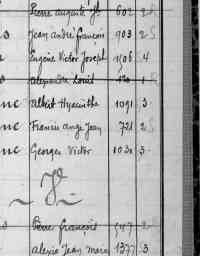 Pierre auguste 602 2
Jean andré françois 903 2
Eugène Victor Joseph 1506 4
alexandre Louis 1
nc Albert Hyacinthe 1091 3
nc Francis ange Jean 721 2
nc Georges Victor 1030 3
Pierre françois 2
alexis Jean marie 1377 3